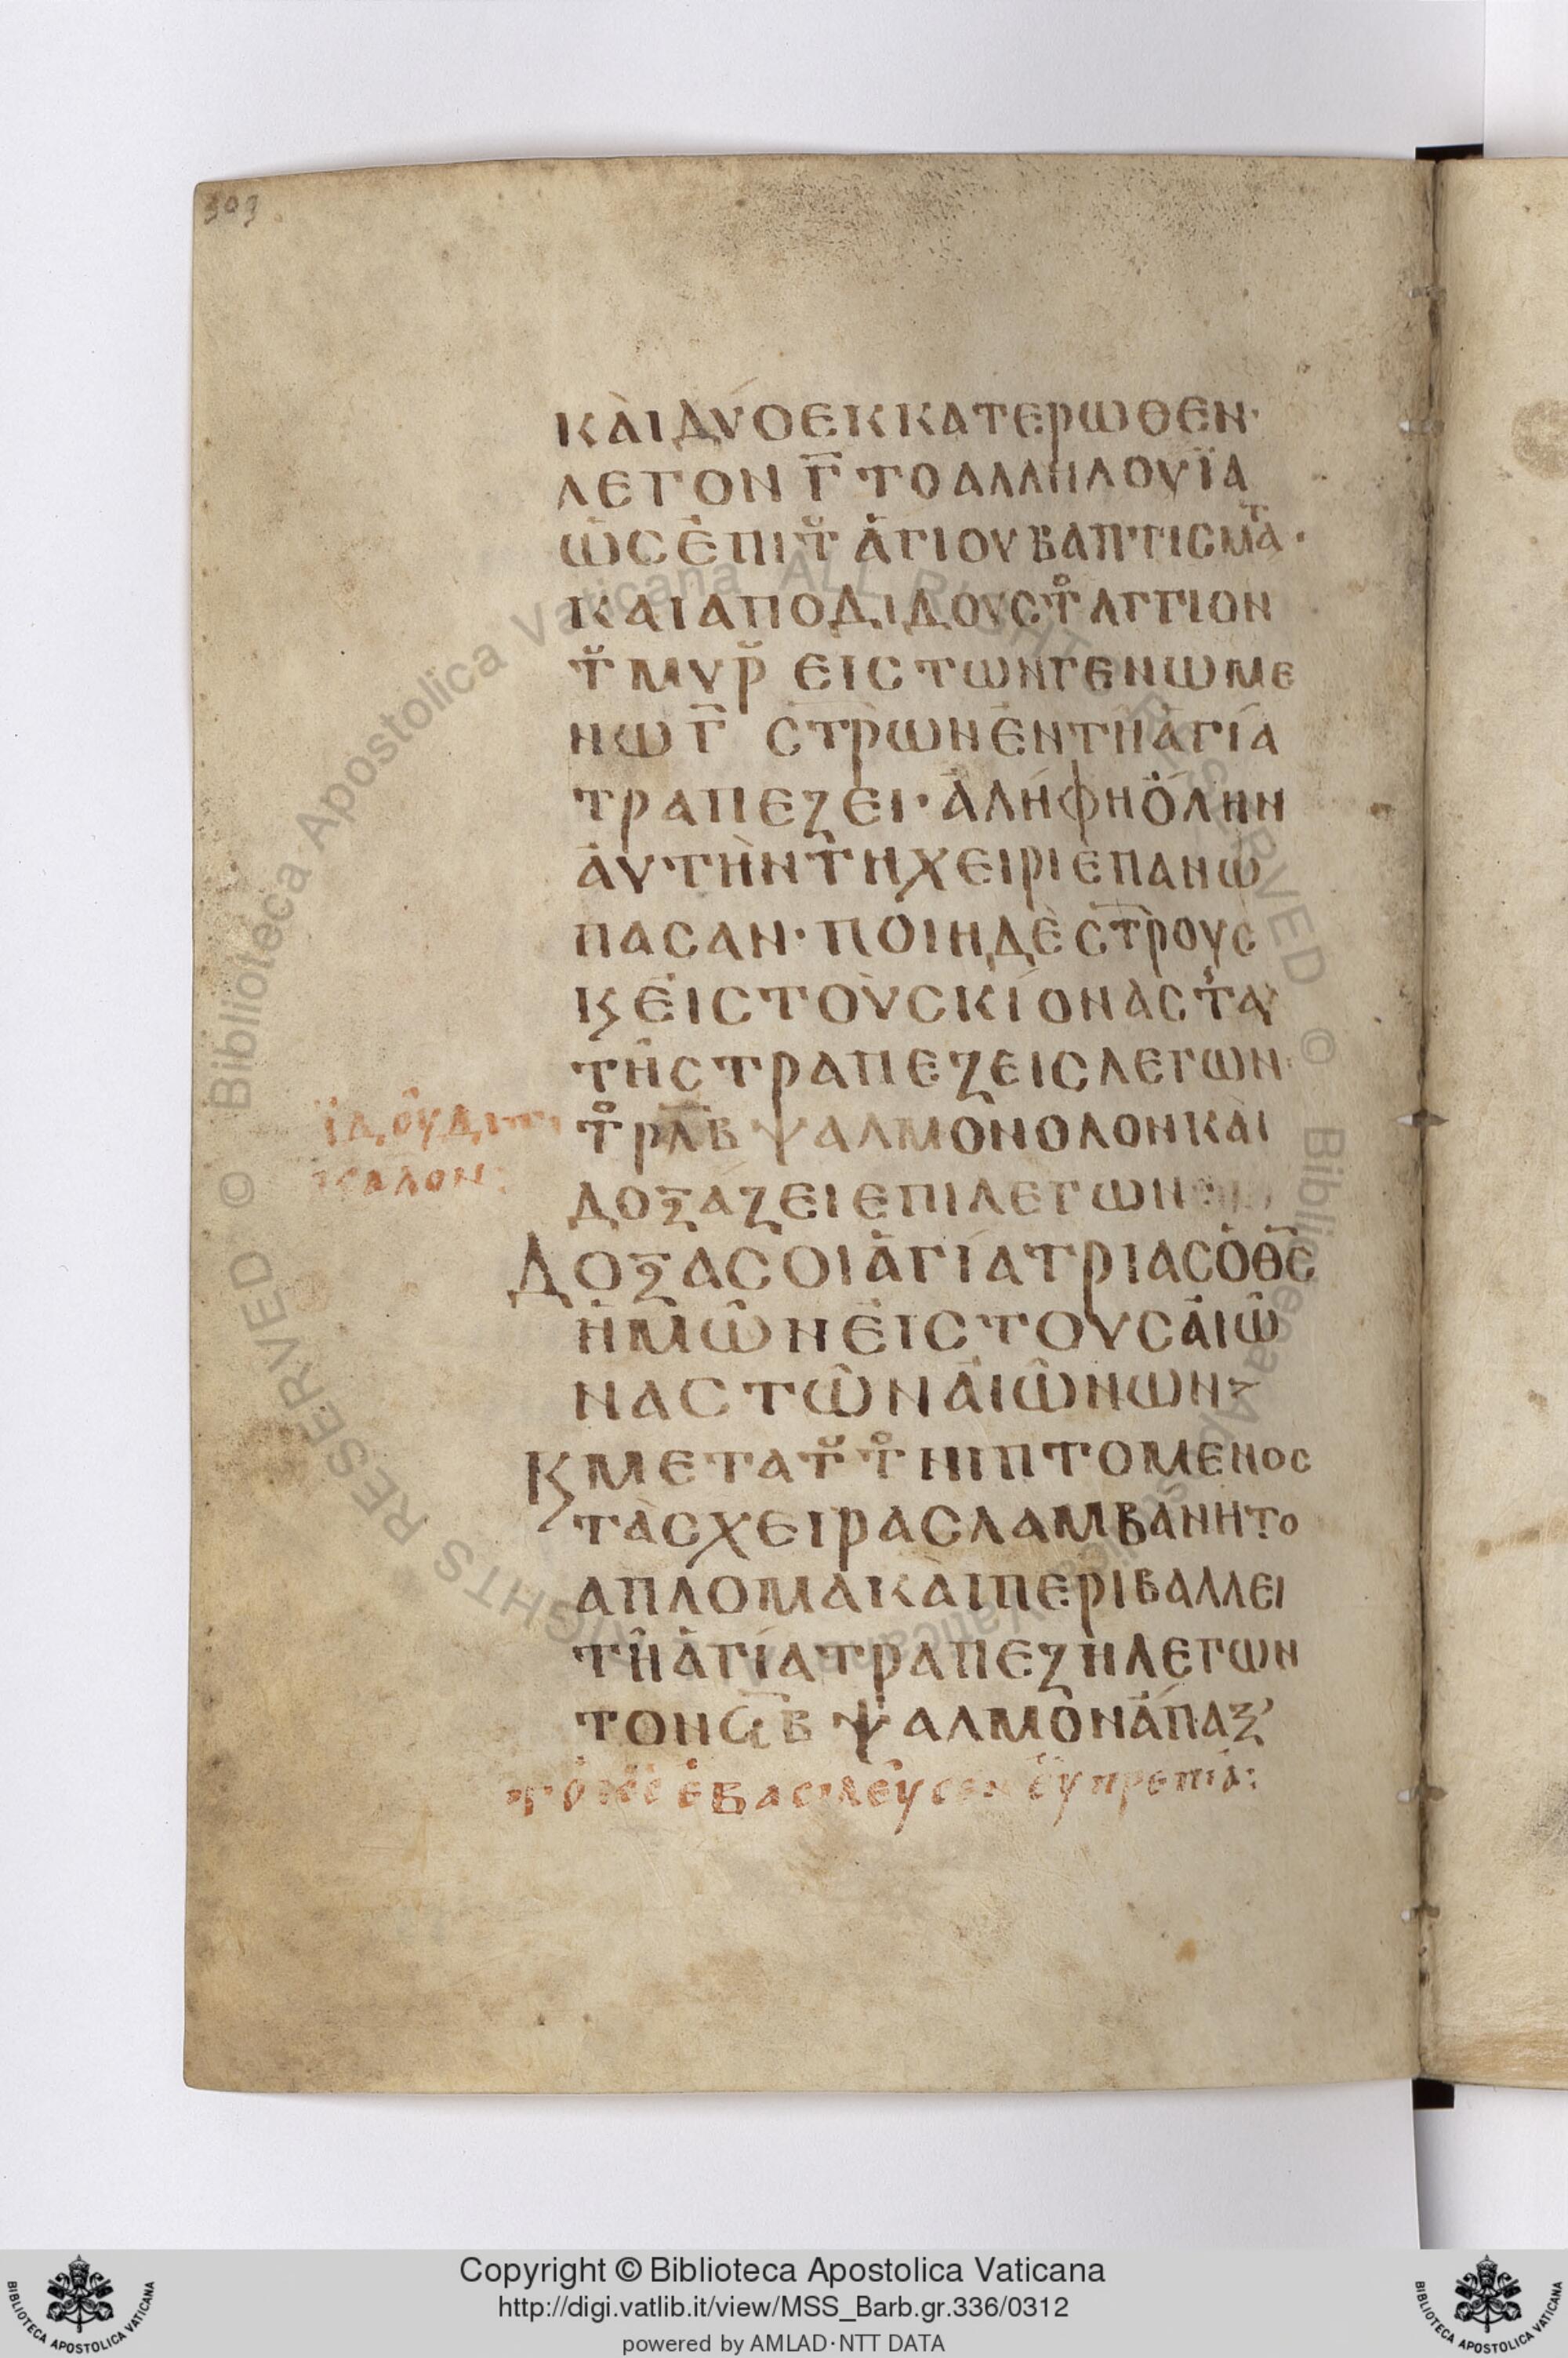 303
ΚΑΙ ΔΥΟ ΕΚ ΚΑΤΕΡΩΘΕΝ·
ΛΕΓΟΝ Γ̅ ΤΟ ΑΛΛΗΛΟΥΪΑ
ΩΣ ΕΠΙ Τ͂ ΑΓΙΟΥ ΒΑΠΤΙΣΜΑ^Τ·
ΚΑΙ ΑΠΟΔΙΔΟΥΣ Τ^Ο ΑΓΓΙΟΝ
Τ͂ ΜΥΡ͂ ΕΙΣ ΤΩΝ ΓΕΝΩΜΕ
ΝΩ Γ̅ ΣΤΡΩΝ ΕΝ ΤΗ ΑΓΙΑ
ΤΡΑΠΕΖΕΙ· ΑΛΗΦΗ ΟΛΗΝ
ΑΥΤΗΝ ΤΗ ΧΕΙΡΙ ΕΠΑΝΩ
ΠΑΣΑΝ· ΠΟΙΗ ΔΕ ΣΤΡΟΥΣ
Κ͵ ΕΙΣ ΤΟΥΣ ΚΙΟΝΑΣ ΤΑΥ
ΤΗΣ ΤΡΑΠΕΖΕΙΣ ΛΕΓΩΝ·
Τ^Ο ΡΛΒ ΨΑΛΜΟΝ ΟΛΟΝ ΚΑΙ
ΪΔΟΥ ΔΙ ΤΙ
ΚΑΛΟΝ:
ΔΟΞΑΖΕΙ ΕΠΙΛΕΓΩΝ
ΔΟΞΑ ΣΟΙ ΑΓΙΑ ΤΡΙΑΣ Ο Θ̅Σ̅
ΗΜΩΝ ΕΙΣ ΤΟΥΣ ΑΙΩ
ΝΑΣ ΤΩΝ ΑΙΩΝΩΝ
Κ͵ ΜΕΤΑ Τ͂ Τ^Ο ΝΙΠΤΟΜΕΝΟΣ
ΤΑΣ ΧΕΙΡΑΣ ΛΑΜΒΑΝΗ ΤΟ
ΑΠΛΟΜΑ ΚΑΙ ΠΕΡΙΒΑΛΛΕΙ
ΤΗ ΑΓΙΑ ΤΡΑΠΕΖΗ ΛΕΓΩΝ
ΤΟΝ ϞΒ ΨΑΛΜΟΝ ΑΠΑΞ
τ Ο Κ̅Σ̅ ΕΒΑΣΙΛΕΥΣΕΝ ΕΥΠΡΕΠΙΑ:
Copyright © Biblioteca Apostolica Vaticana
http://digi.vatlib.it/view/MSS_Barb.gr.336/0312
powered by AMLAD·NTT DATA